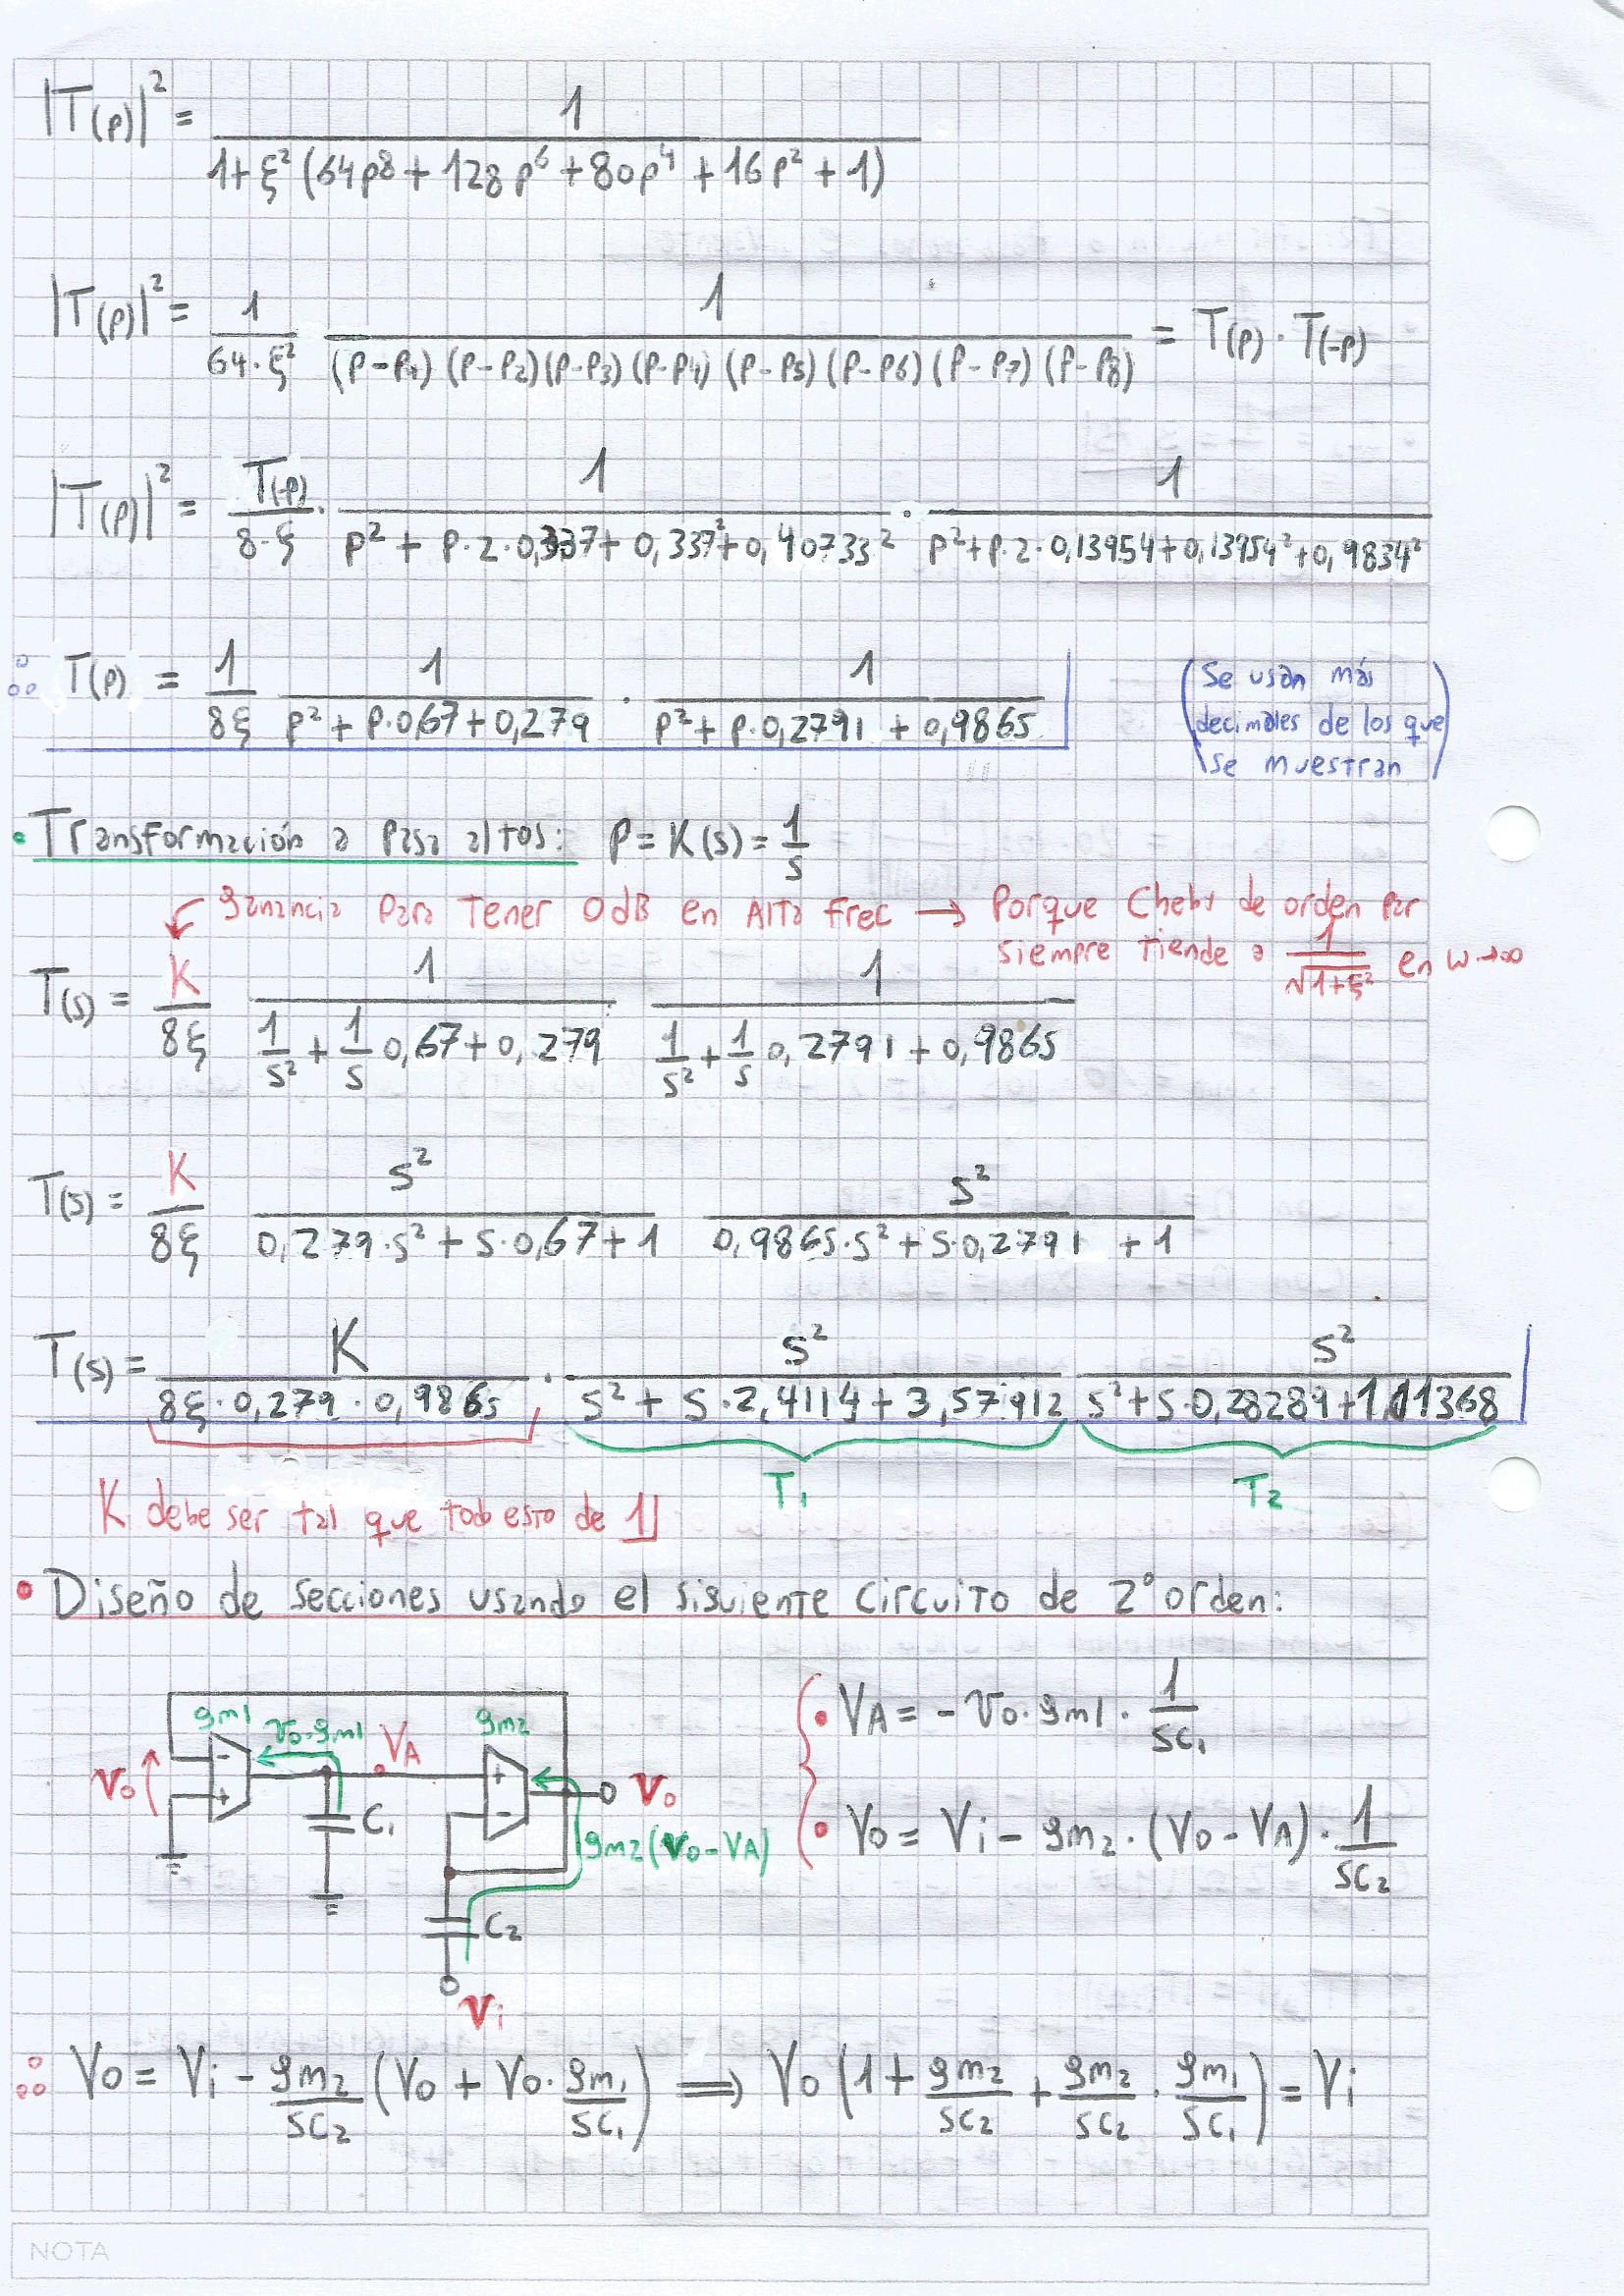 |T(p)|² = 1 / (1+ξ² (64p⁸ + 128p⁶ + 80p⁴ + 16p² + 1))
|T(p)|² = 1 / (64·ξ²) 1 / ((p-p1) (p-p2) (p-p3) (p-p4) (p-p5) (p-p6) (p-p7) (p-p8)) = T(p) · T(-p)
|T(p)|² = T(-p) / (8·ξ) · 1 / (p² + p·2·0,337 + 0,337² + 0,40733²) · 1 / (p²+p·2·0,13954+0,13954²+0,9834²)
∴ T(p) = 1 / (8ξ) 1 / (p² + p·0,67 + 0,279) · 1 / (p² + p·0,2791 + 0,9865)
(Se usan más
decimales de los que
se muestran)
• Transformación a Pasa altos: P = K(s) = 1/s
ganancia para tener 0dB en Alta Frec → Porque Cheby de orden par
siempre tiende a 1/√(1+ξ²) en ω→∞
T(s) = K / (8ξ) 1 / (1/s² + 1/s 0,67 + 0,279) 1 / (1/s² + 1/s 0,2791 + 0,9865)
T(s) = K / (8ξ) s² / (0,279·s² + s·0,67 + 1) s² / (0,9865·s² + s·0,2791 + 1)
T(s) = K / (8ξ·0,279·0,9865) · s² / (s² + s·2,4114 + 3,57912) s² / (s² + s·0,28289 + 1,011368)
T1 T2
K debe ser tal que todo esto de 1
• Diseño de secciones usando el siguiente circuito de 2° orden:
gm1 Vo·gm1 VA gm2
Vo - + C1 + - Vo
gm2(Vo-VA)
C2
Vi
• VA = -Vo·gm1· 1/(SC1)
• Vo = Vi - gm2·(Vo-VA)· 1/(SC2)
∴ Vo = Vi - gm2/(SC2) (Vo + Vo· gm1/(SC1)) ⟹ Vo (1 + gm2/(SC2) + gm2/(SC2) · gm1/(SC1)) = Vi
NOTA